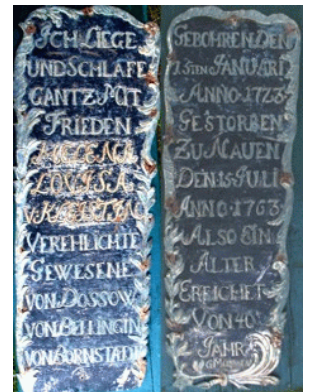 ICH LIEGE
UND SCHLAFE
GANTZ MIT
FRIEDEN
HELENA
LOVISA
V. KATTIN
VEREHLICHTE
GEWESENE
VON DOSSOW
VON BELLINGIN
VON BORNSTADT
GEBOHREN DEN
15TEN JANUARI
ANNO 1723
GESTORBEN
ZU MAUEN
DEN 15 JULI
ANNO 1763
ALSO EIN
ALTER
ERREICHET
VON 40
JAHR